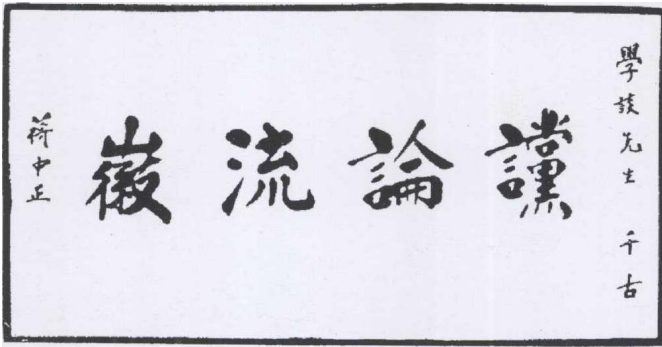 學談先生 千古
讜論流徽
蔣中正